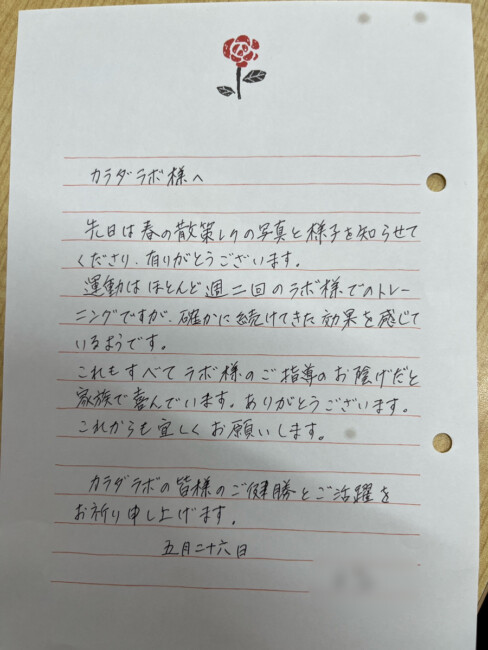 カラダラボ様へ
先日は春の散策しりの写真と様子を知らせて
くださり、有りがとうございます。
運動はほとんど週二回のラボ様でのトレー
ニングですが、確かに続けてきた効果を感じて
いるようです。
これもすべてラボ様のご指導のお陰げだと
家族で喜んでいます。ありがとうございます。
これからも宜しくお願いします。
カラダラボの皆様のご健勝とご活躍を
お祈り申し上げます。
五月二十六日